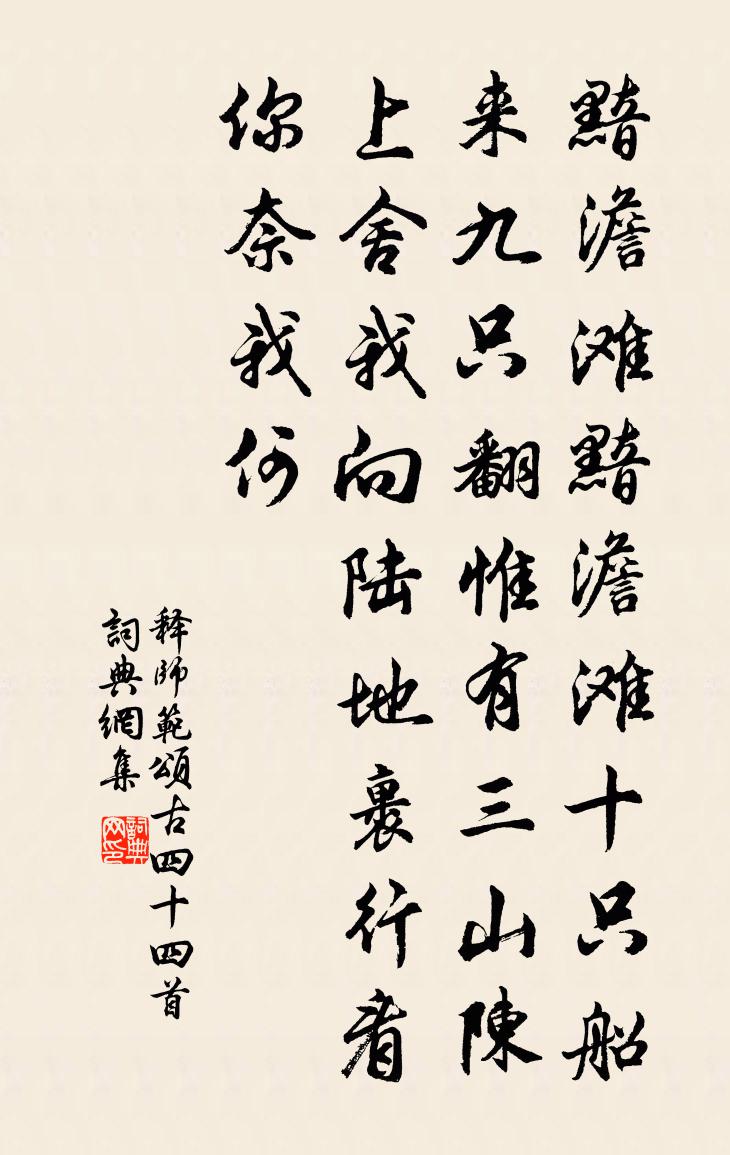 黯澹滩黯澹滩十只船
来九只翻惟有三山陳
上舍我向陆地裹行看
你奈我何
释師範頌古四十四首
詞典網集
詞典网印